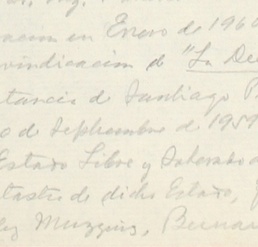 ación en Enero de 1960
vindicación de "La De
tancia de Santiago
o de Septiembre de 1959
Estado Libre y Soberano d
tastro de dicho Estado,
Muzquiz, Bernar